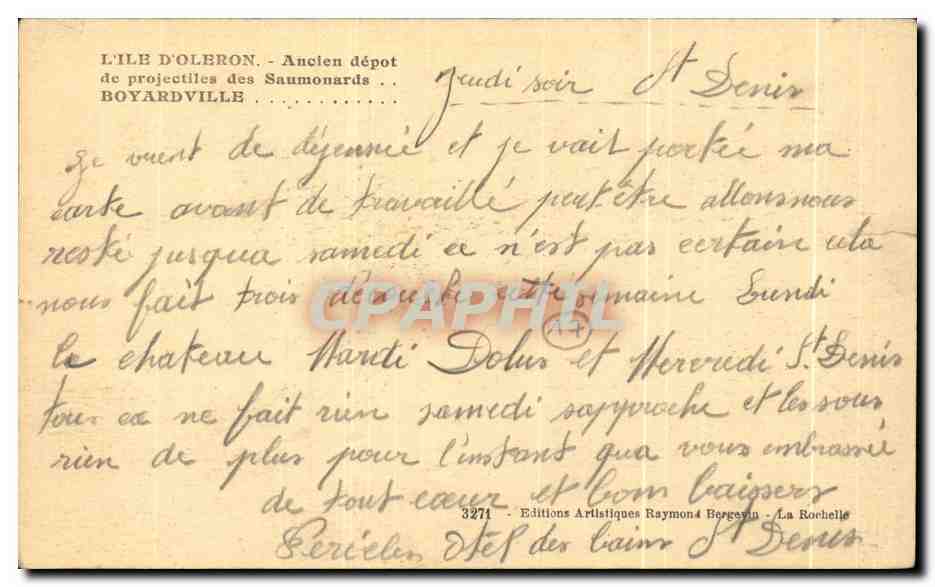 L'ILE D'OLERON. - Ancien dépot
de projectiles des Saumonards . .
BOYARDVILLE . . . . . . . . . . . .
Jeudi soir St Denis
Je vient de déjeunée et je vait portée ma
carte avant de travaillé peut être allons nous
resté jusqua samedi ce n'est pas certain cela
nous fait trois cette semaine Lundi
le chateau Mardi Dolus et Mercredi St Denis
tous ca ne fait rien samedi sapproche et les sous
rien de plus pour l'instant qua vous embrassée
de tout cœur et bons baisers
3271 - Editions Artistiques Raymond Bergevin - La Rochelle
Otel des bains St Denis
CPAPHIL
17